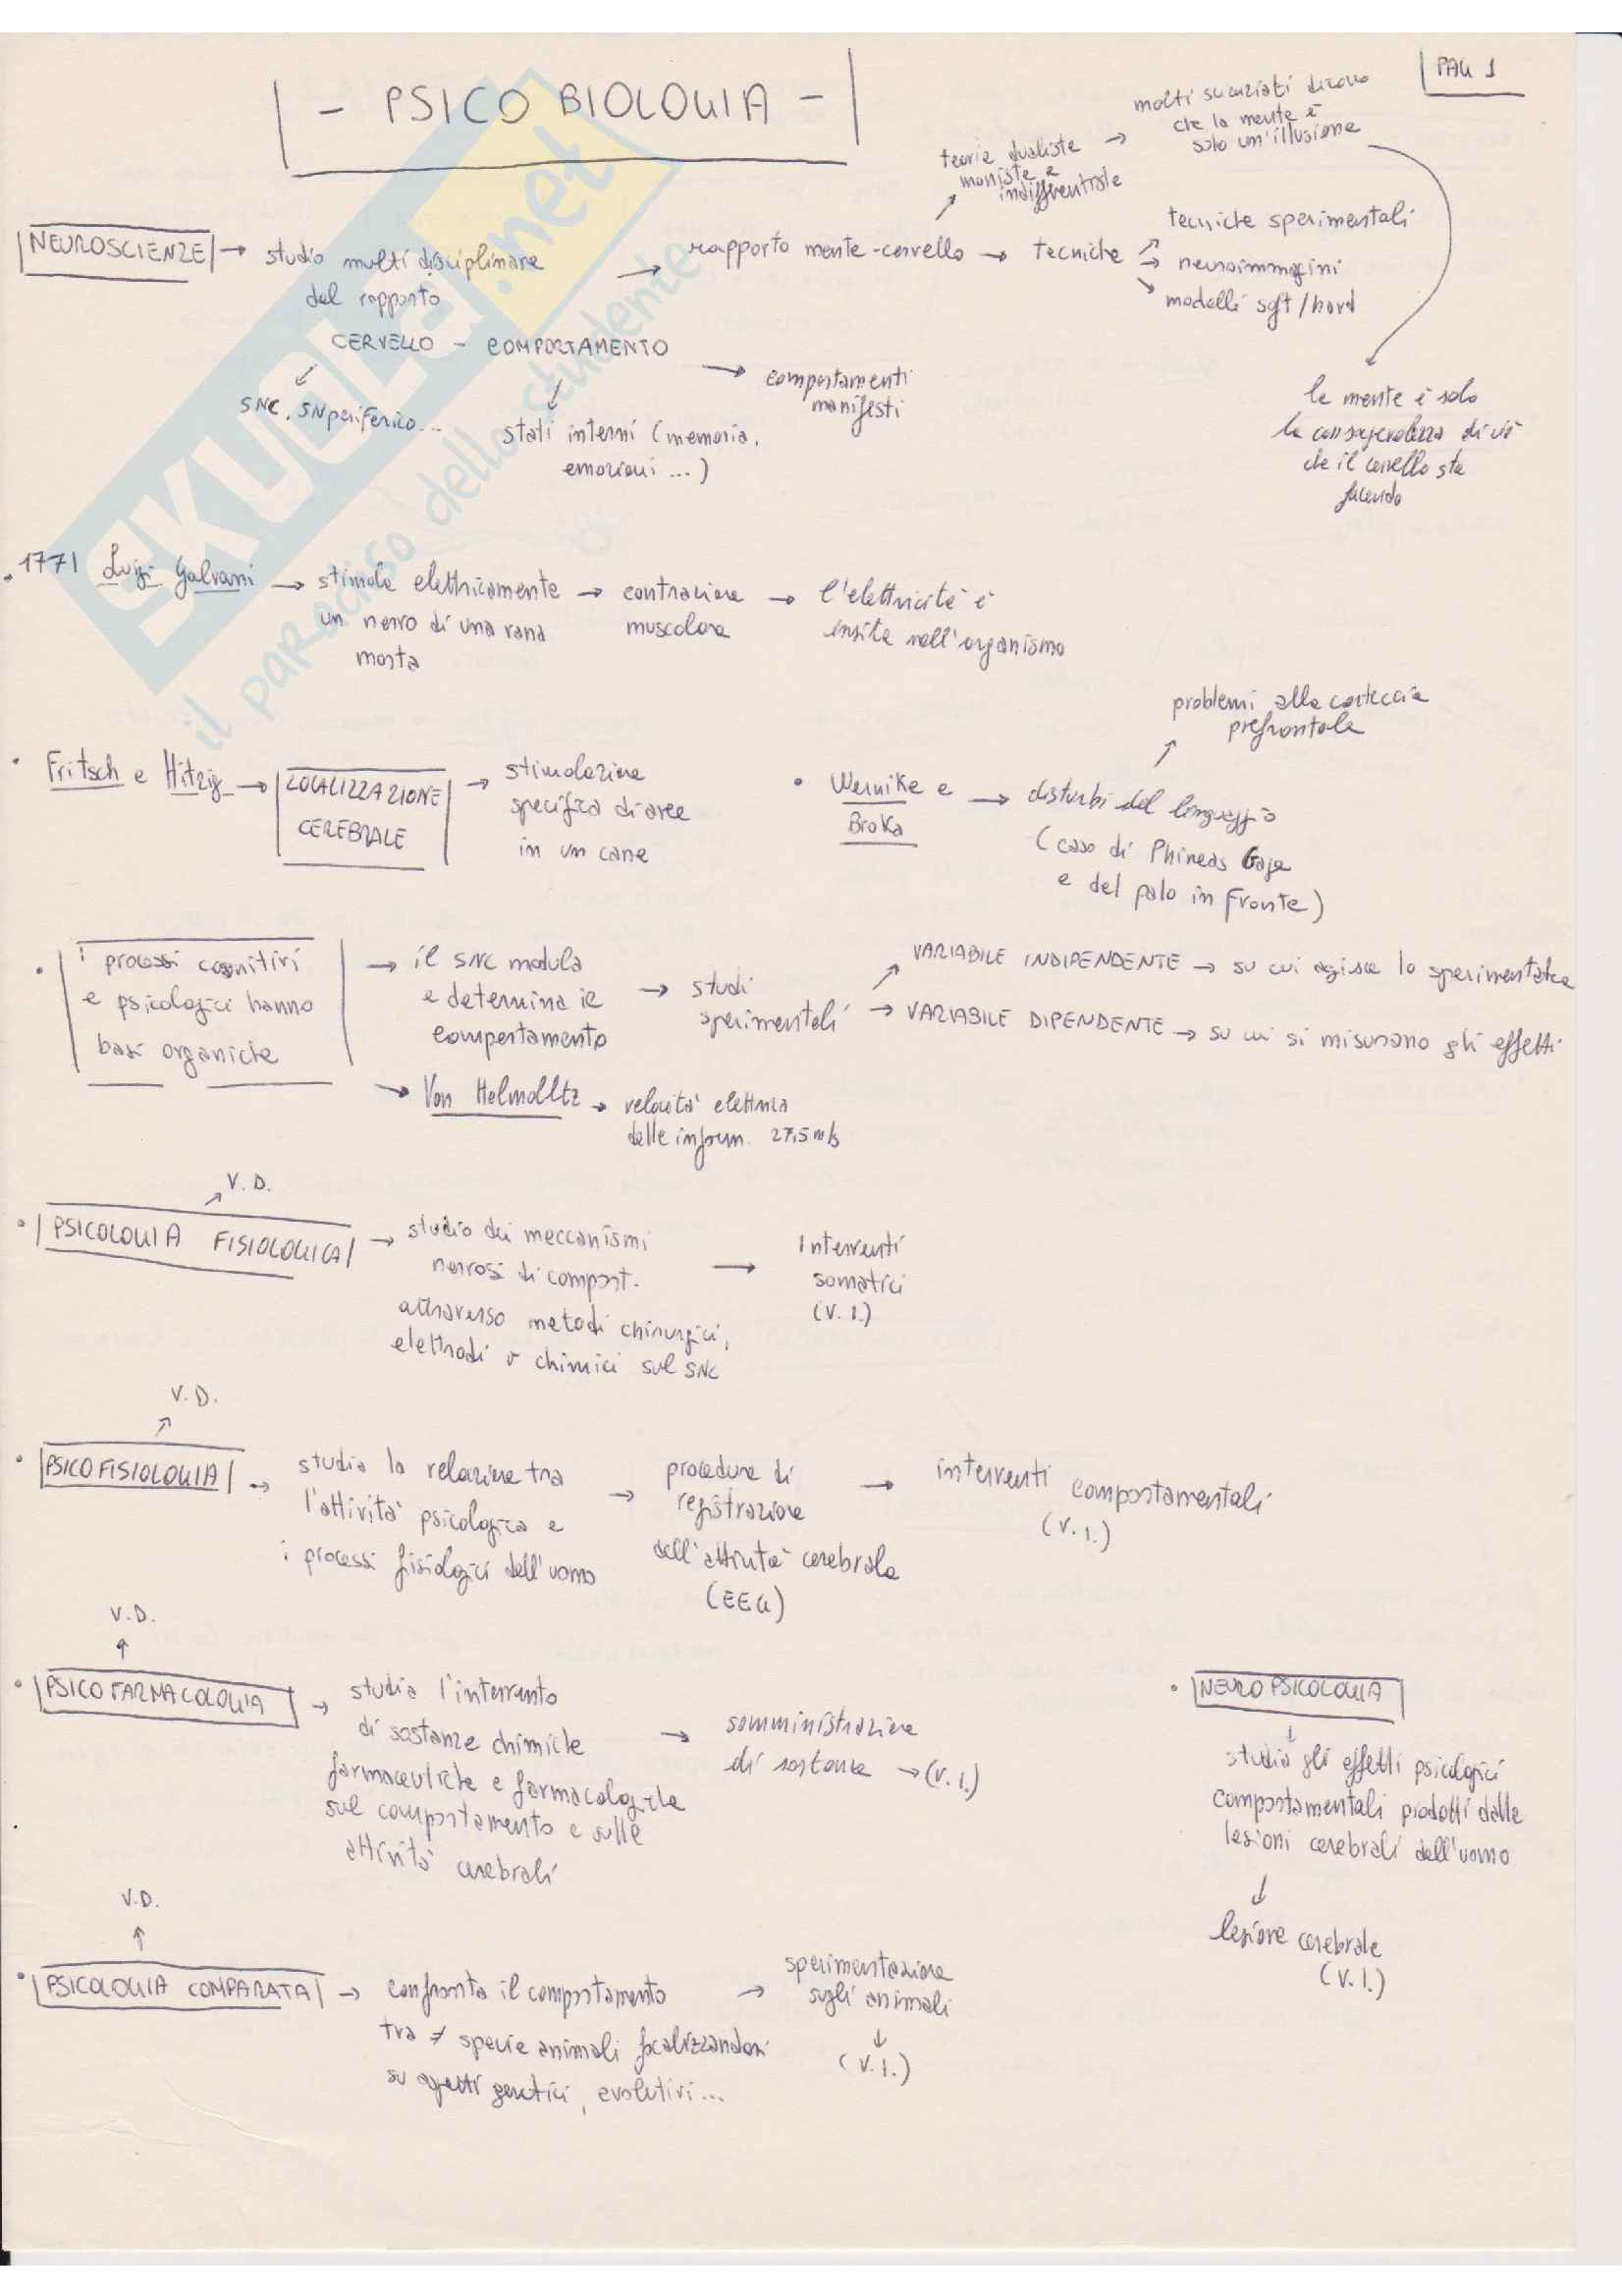 PAG 1
- PSICO BIOLOGIA -
NEUROSCIENZE → studio multidisciplinare
del rapporto
CERVELLO - COMPORTAMENTO
SNC, SN periferico...
stati interni (memoria,
emozioni ...)
→ comportamenti
manifesti
→ rapporto mente-cervello → tecniche
teorie dualiste
moniste e
indifferentiste
→ molti scienziati dicono
che la mente è
solo un'illusione
tecniche sperimentali
→ neuroimmagini
modelli soft/hard
la mente è solo
la consapevolezza di ciò
che il cervello sta
facendo
• 1771 Luigi Galvani → stimola elettricamente → contrazione → l'elettricità è
un nervo di una rana muscolare insita nell'organismo
morta
• Fritsch e Hitzig → LOCALIZZAZIONE
CEREBRALE
→ stimolazione
specifica di aree
in un cane
problemi alla corteccia
prefrontale
• Wernike e → disturbi del linguaggio
Broka (caso di Phineas Gage
e del palo in fronte)
• i processi cognitivi
e psicologici hanno
basi organiche
→ il SNC modula
e determina il
comportamento
→ studi
sperimentali
VARIABILE INDIPENDENTE → su cui agisce lo sperimentatore
→ VARIABILE DIPENDENTE → su cui si misurano gli effetti
→ Von Helmolltz → velocità elettrica
delle inform. 27,5 m/s
V.D.
• PSICOLOGIA FISIOLOGICA → studio dei meccanismi
nervosi di comport.
attraverso metodi chirurgici,
elettrodi o chimici sul SNC
→ Interventi
somatici
(V.I.)
V.D.
• PSICOFISIOLOGIA → studia la relazione tra
l'attività psicologica e
i processi fisiologici dell'uomo
→ procedure di
registrazione
dell'attività cerebrale
(EEG)
→ interventi comportamentali
(V.I.)
V.D.
• PSICOFARMACOLOGIA → studia l'intervento
di sostanze chimiche
farmaceutiche e farmacologiche
sul comportamento e sulle
attività cerebrali
→ somministrazione
di sostanze → (V.I.)
• NEUROPSICOLOGIA
studia gli effetti psicologici
comportamentali prodotti dalle
lesioni cerebrali dell'uomo
lesione cerebrale
(V.I.)
V.D.
• PSICOLOGIA COMPARATA → confronta il comportamento
tra ≠ specie animali focalizzandosi
su aspetti genetici, evolutivi...
→ sperimentazione
sugli animali
(V.I.)
SKUOLA.net
il paradiso dello studente